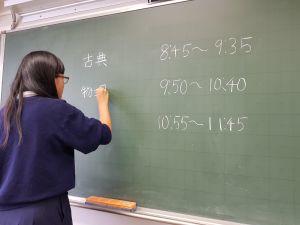 古典 8:45～9:35
物 9:50～10:40
10:55～11:45